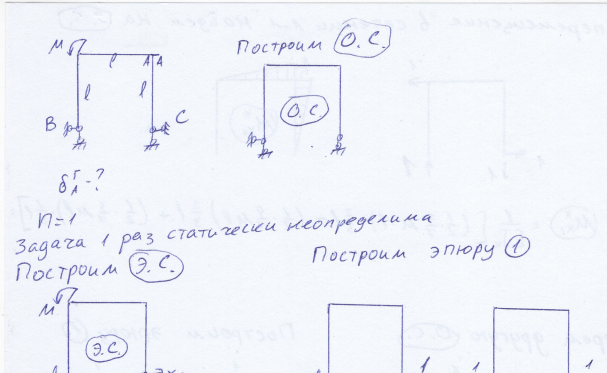 M
Построим О.С.
l
A A
l
l
B
C
О.С.
δ Г А - ?
n=1
Задача 1 раз статически неопределима
Построим Э.С.
Построим эпюру 1
M
Э.С.
1
1
1